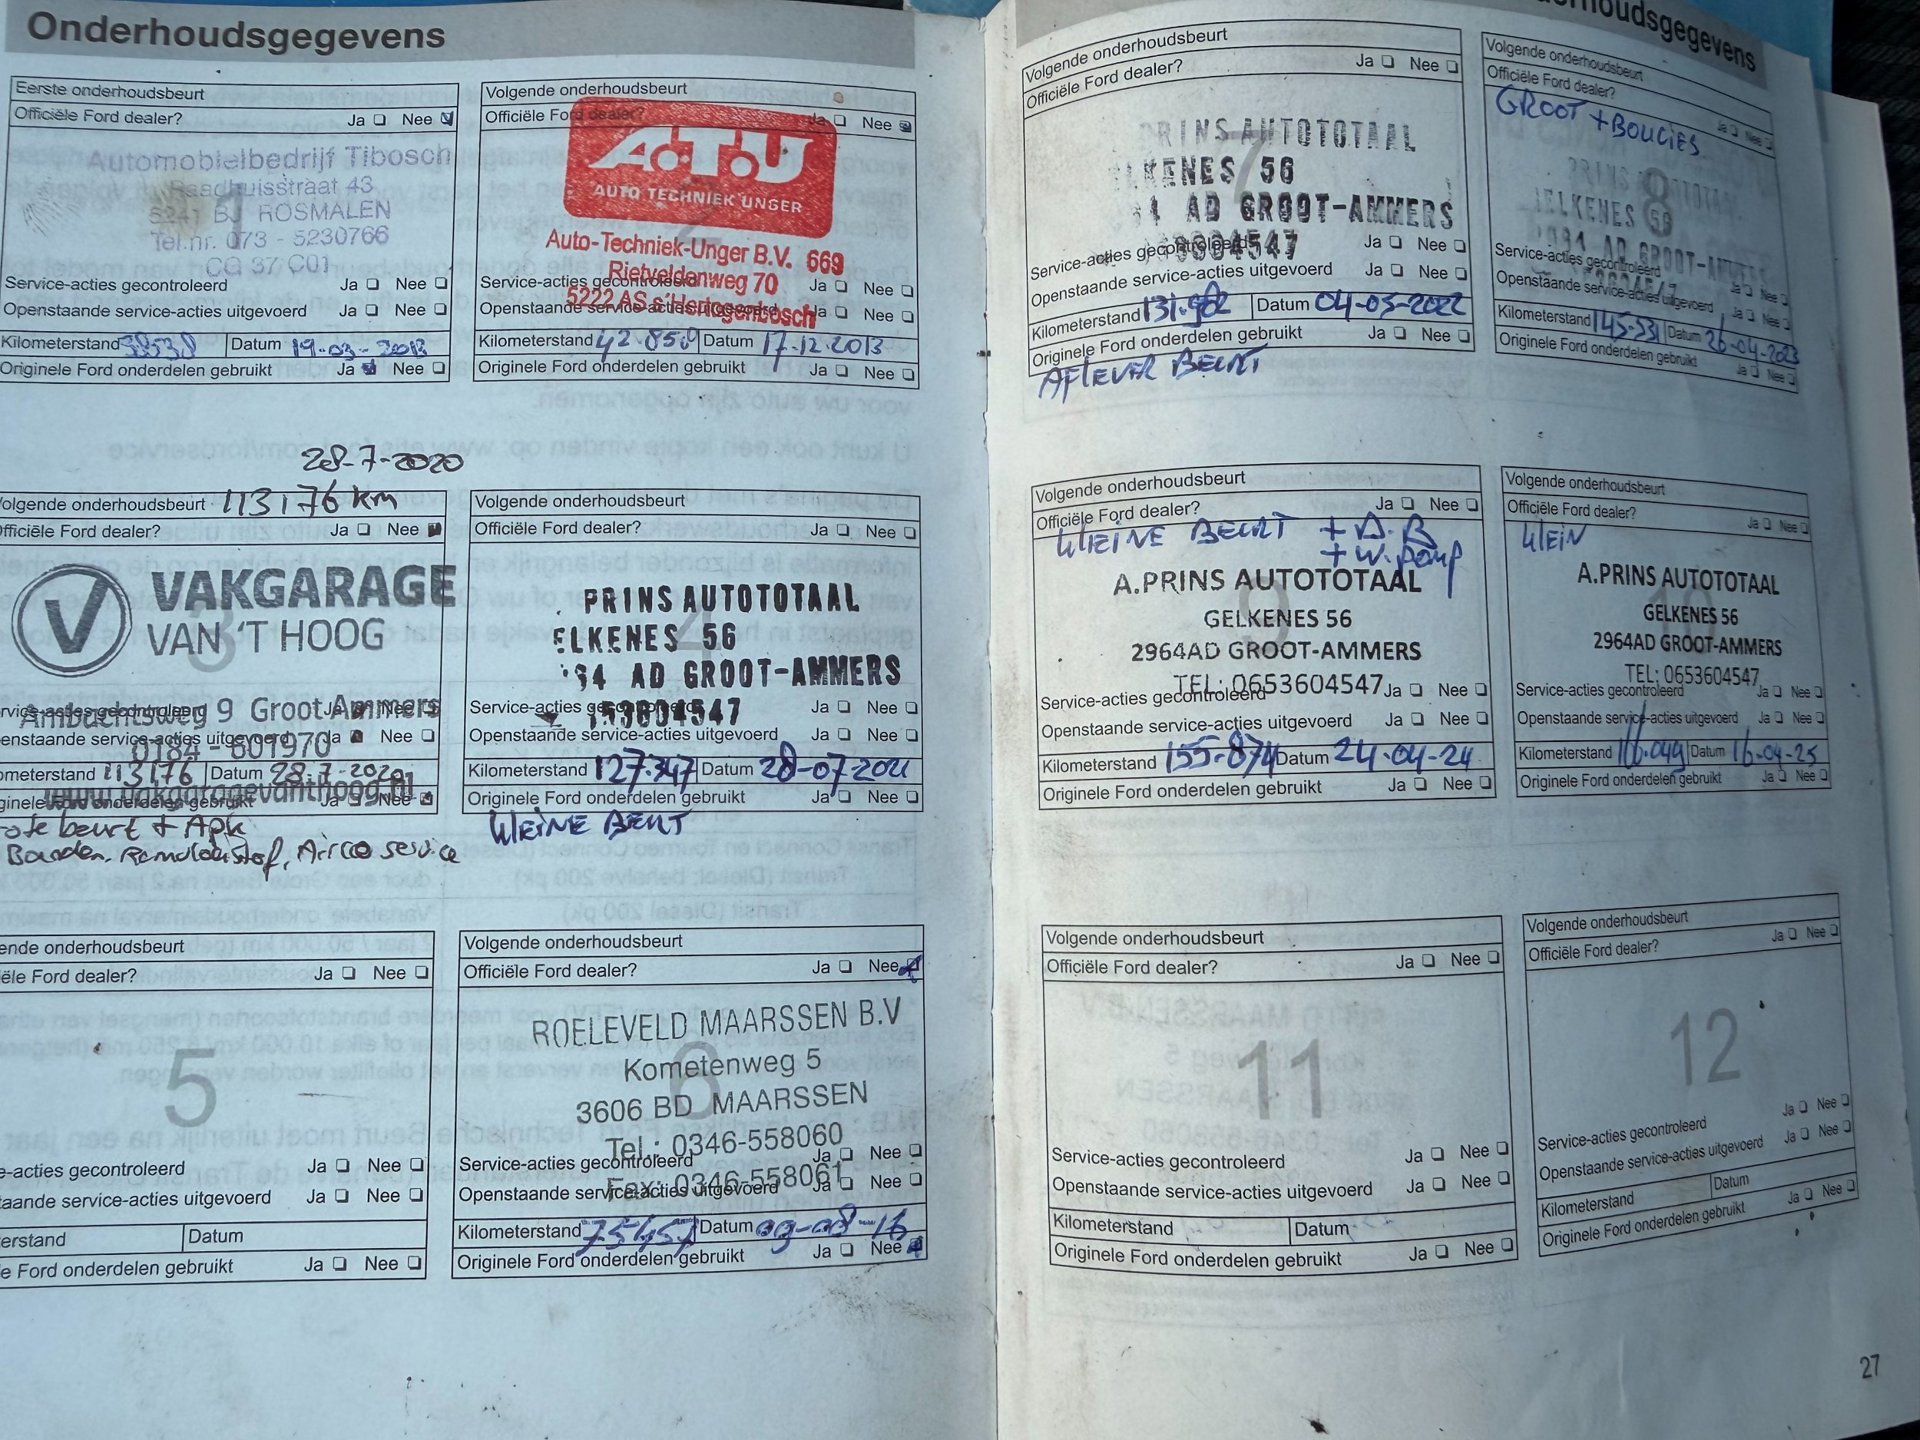 Onderhoudsgegevens
Eerste onderhoudsbeurt
Officiële Ford dealer? Ja Nee
Automobielbedrijf Tibosch
Raadhuisstraat 43
5241 BJ ROSMALEN
Tel.nr. 073 - 5230766
CG 37 C01
1
Service-acties gecontroleerd Ja Nee
Openstaande service-acties uitgevoerd Ja Nee
Kilometerstand 38538 Datum 19-03-2013
Originele Ford onderdelen gebruikt Ja Nee
Volgende onderhoudsbeurt
Officiële Ford dealer? Ja Nee
A.T.U
AUTO TECHNIEK UNGER
Auto-Techniek-Unger B.V. 669
Rietveldenweg 70
5222 AS s'Hertogenbosch
Service-acties gecontroleerd Ja Nee
Openstaande service-acties uitgevoerd Ja Nee
Kilometerstand 42.850 Datum 17.12.2013
Originele Ford onderdelen gebruikt Ja Nee
28-7-2020
olgende onderhoudsbeurt 113176 km
fficiële Ford dealer? Ja Nee
VAKGARAGE
VAN 'T HOOG
3
Ambachtsweg 9 Groot Ammers
0184 - 601970
www.vakgaragevanthoog.nl
rvice-acties gecontroleerd Ja Nee
enstaande service-acties uitgevoerd Ja Nee
ometerstand 113176 Datum 28.7-2020
ginele Ford onderdelen gebruikt Ja Nee
rote beurt + Apk
Banden, Remvloeistof, Airco service
Volgende onderhoudsbeurt
Officiële Ford dealer? Ja Nee
PRINS AUTOTOTAAL
ELKENES 56
64 AD GROOT-AMMERS
53604547
4
Service-acties gecontroleerd Ja Nee
Openstaande service-acties uitgevoerd Ja Nee
Kilometerstand 127.347 Datum 28-07-2021
Originele Ford onderdelen gebruikt Ja Nee
KLEINE BEURT
ende onderhoudsbeurt
ële Ford dealer? Ja Nee
5
e-acties gecontroleerd Ja Nee
taande service-acties uitgevoerd Ja Nee
erstand Datum
e Ford onderdelen gebruikt Ja Nee
Volgende onderhoudsbeurt
Officiële Ford dealer? Ja Nee
ROELEVELD MAARSSEN B.V
Kometenweg 5
3606 BD MAARSSEN
Tel.: 0346-558060
Fax: 0346-558061
6
Service-acties gecontroleerd Ja Nee
Openstaande service-acties uitgevoerd Ja Nee
Kilometerstand 75457 Datum 09-08-16
Originele Ford onderdelen gebruikt Ja Nee
derhoudsgegevens
Volgende onderhoudsbeurt
Officiële Ford dealer? Ja Nee
PRINS AUTOTOTAAL
ELKENES 56
4 AD GROOT-AMMERS
3604547
7
Service-acties gecontroleerd Ja Nee
Openstaande service-acties uitgevoerd Ja Nee
Kilometerstand 131.982 Datum 04-05-2022
Originele Ford onderdelen gebruikt Ja Nee
AFLEVER BEURT
Volgende onderhoudsbeurt
Officiële Ford dealer? Ja Nee
GROOT + BOUGIES
PRINS AUTOTOTAAL
GELKENES 56
AD GROOT-AMMERS
8
Service-acties gecontroleerd Ja Nee
Openstaande service-acties uitgevoerd Ja Nee
Kilometerstand 145.531 Datum 26-04-2023
Originele Ford onderdelen gebruikt Ja Nee
Volgende onderhoudsbeurt
Officiële Ford dealer? Ja Nee
KLEINE BEURT + D.R
+ W. Pomp
A.PRINS AUTOTOTAAL
GELKENES 56
2964AD GROOT-AMMERS
TEL: 0653604547
9
Service-acties gecontroleerd Ja Nee
Openstaande service-acties uitgevoerd Ja Nee
Kilometerstand 155-874 Datum 24-04-24
Originele Ford onderdelen gebruikt Ja Nee
Volgende onderhoudsbeurt
Officiële Ford dealer? Ja Nee
KLEIN
A.PRINS AUTOTOTAAL
GELKENES 56
2964AD GROOT-AMMERS
TEL: 0653604547
10
Service-acties gecontroleerd Ja Nee
Openstaande service-acties uitgevoerd Ja Nee
Kilometerstand 166.049 Datum 16-04-25
Originele Ford onderdelen gebruikt Ja Nee
Volgende onderhoudsbeurt
Officiële Ford dealer? Ja Nee
11
Service-acties gecontroleerd Ja Nee
Openstaande service-acties uitgevoerd Ja Nee
Kilometerstand Datum
Originele Ford onderdelen gebruikt Ja Nee
Volgende onderhoudsbeurt
Officiële Ford dealer? Ja Nee
12
Service-acties gecontroleerd Ja Nee
Openstaande service-acties uitgevoerd Ja Nee
Kilometerstand Datum
Originele Ford onderdelen gebruikt Ja Nee
27